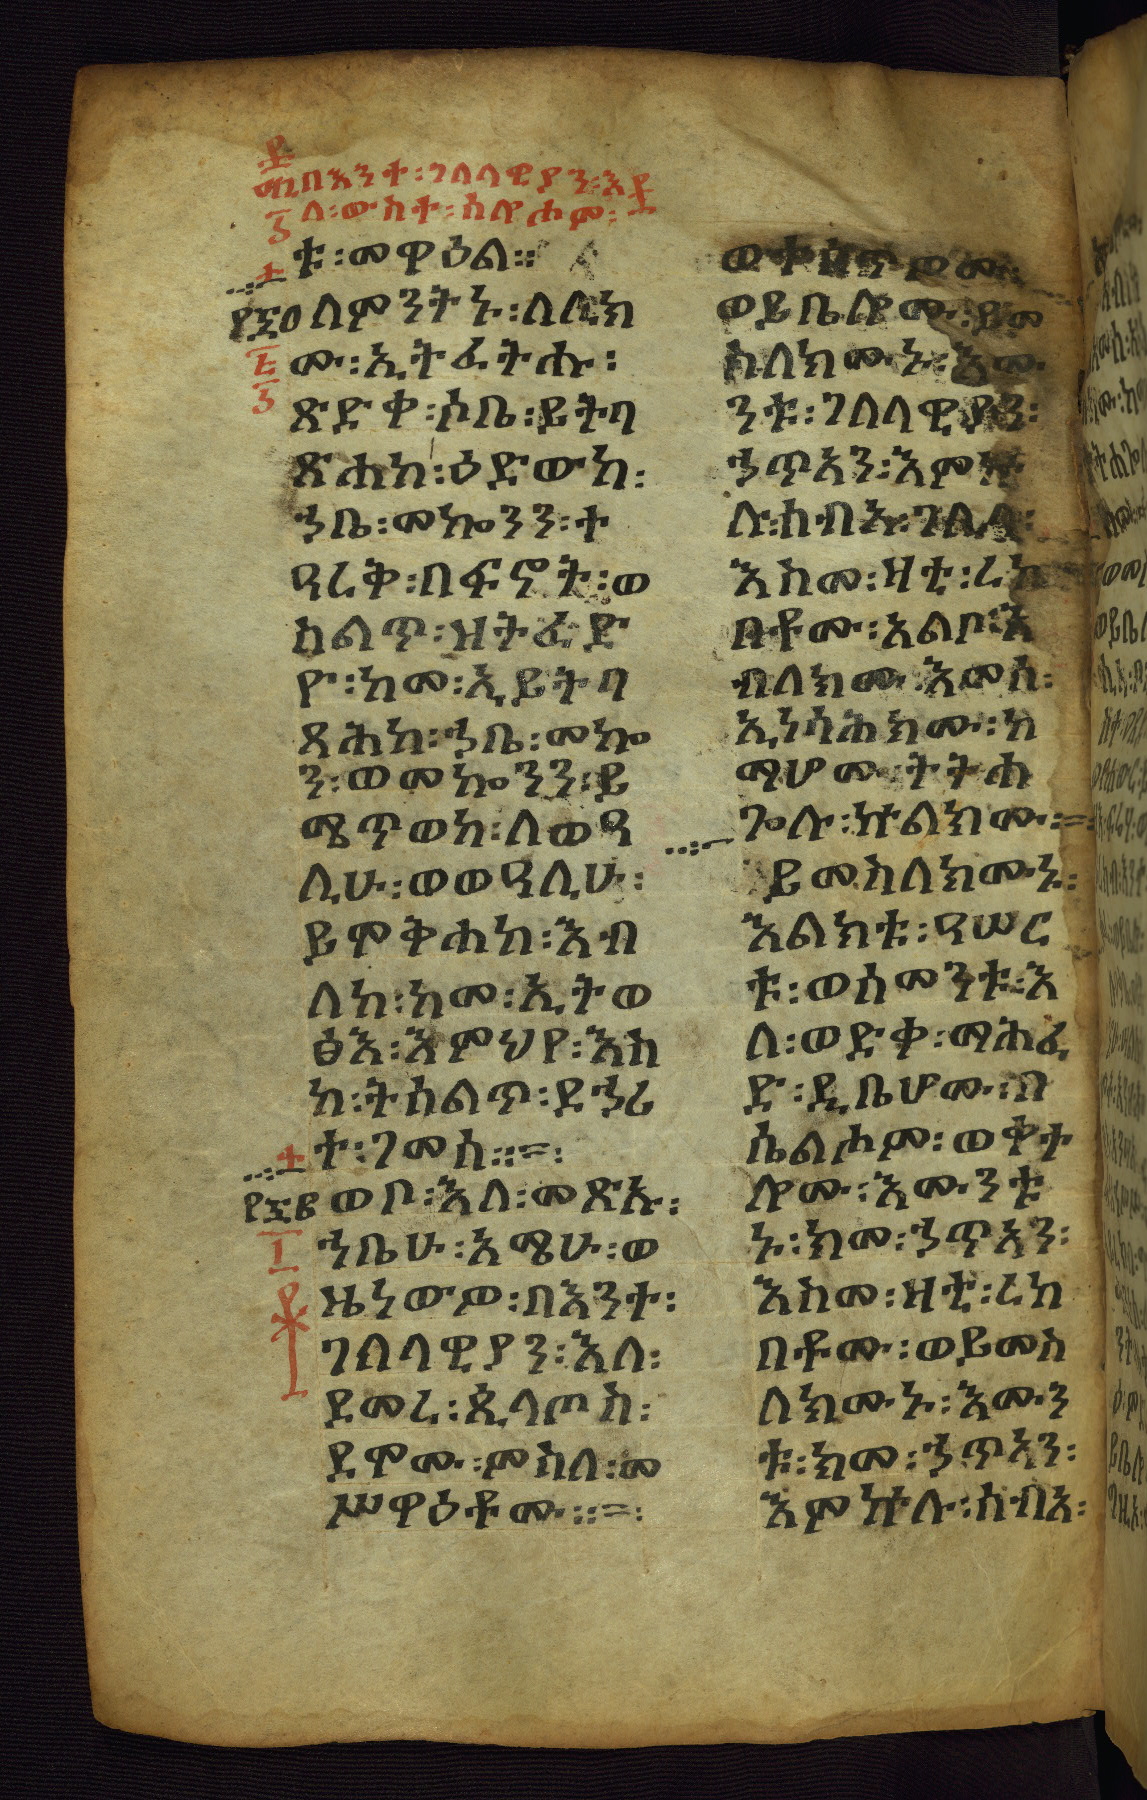 በእንተ፡ገሊላዊያን፡እ
ለ፡ውስተ፡ሰሎሖም፡
ቱ፡መዋዕል።
ለምንትኑ፡ለሊክ
ሙ፡ኢትፈትሑ፡
ጽድቀ፡ሶቤ፡ይትባ
ጽሐከ፡ዕድውከ፡
ኀቤ፡መኰንን፡ተ
ዓረቅ፡በፍኖት፡ወ
ሰልጥ፡ዘትፈድ
ዮ፡ከመ፡ኢይትባ
ጻሕከ፡ኀቤ፡መኰ
ን፡ወመኰንን፡ይ
ሜጥወከ፡ለወዓ
ሊሁ፡ወወዓሊሁ፡
ይሞቅሐከ፡እብ
ለከ፡ከመ፡ኢትወ
ፅእ፡እምህየ፡እስ
ከ፡ትሰልጥ፡ደኃሪ
ተ፡ገመሰ።=፡
ወቦ፡እለ፡መጽኡ፡
ኀቤሁ፡አሜሁ፡ወ
ዜነውዎ፡በእንተ፡
ገሊላዊያን፡እለ፡
ደመረ፡ጲላጦስ፡
ደሞሙ፡ምስለ፡መ
ሥዋዕቶሙ።=፡
ወይቤሎሙ፡ይመ
ስለክሙኑ፡እሙ
ንቱ፡ገሊላዊያን፡
ኃጥአን፡እምኵ
ሉ፡ሰብአ፡ገሊላ፡
እስመ፡ዛቲ፡ረከ
በቶሙ፡አልቦ፡እ
ብለክሙ፡እመሰ፡
ኢነሳሕክሙ፡ከ
ማሆሙ፡ትትሐ
ጐሉ፡ኵልክሙ፡=፡
ይመስለክሙኑ፡
እልክቱ፡ዓሠር
ቱ፡ወሰመንቱ፡እ
ለ፡ወድቀ፡ማሕፈ
ድ፡ዲቤሆሙ፡በ
ሴልሖም፡ወቀተ
ሎሙ፡እሙንቱ
ኑ፡ከመ፡ኃጥአን፡
እስመ፡ዛቲ፡ረከ
በቶሙ፡ወይመስ
ለክሙኑ፡እሙን
ቱ፡ከመ፡ኃጥአን፡
እምኵሉ፡ሰብእ፡